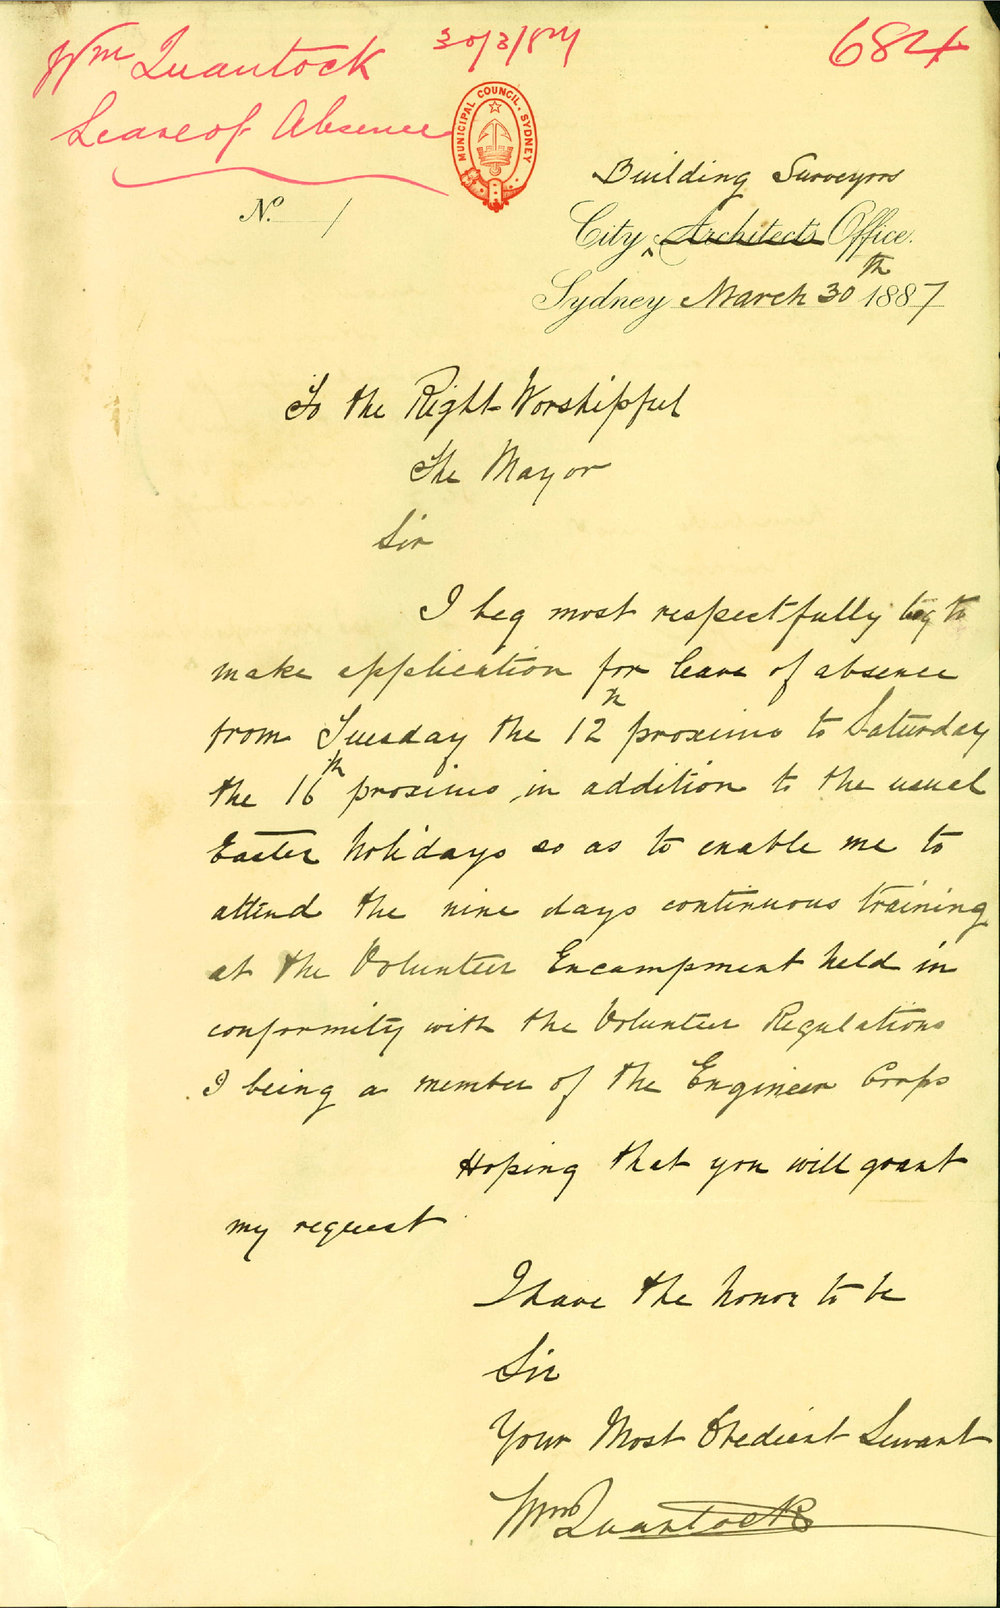 Wm Quantock
Leave of Absence
30/3/87
684
MUNICIPAL COUNCIL. SYDNEY
Building Surveyors
City Architects Office.
No. /
Sydney March 30th 1887
To the Right Worshipful
The Mayor
Sir
I beg most respectfully to
make application for leave of absence
from Tuesday the 12th proximo to Saturday
the 16th proximo, in addition to the usual
Easter holidays so as to enable me to
attend the nine days continuous training
at the Volunteer Encampment held in
conformity with the Volunteer Regulations
I being a member of the Engineer Corps
Hoping that you will grant
my request
I have the honor to be
Sir
Your Most Obedient Servant
Wm Quantock